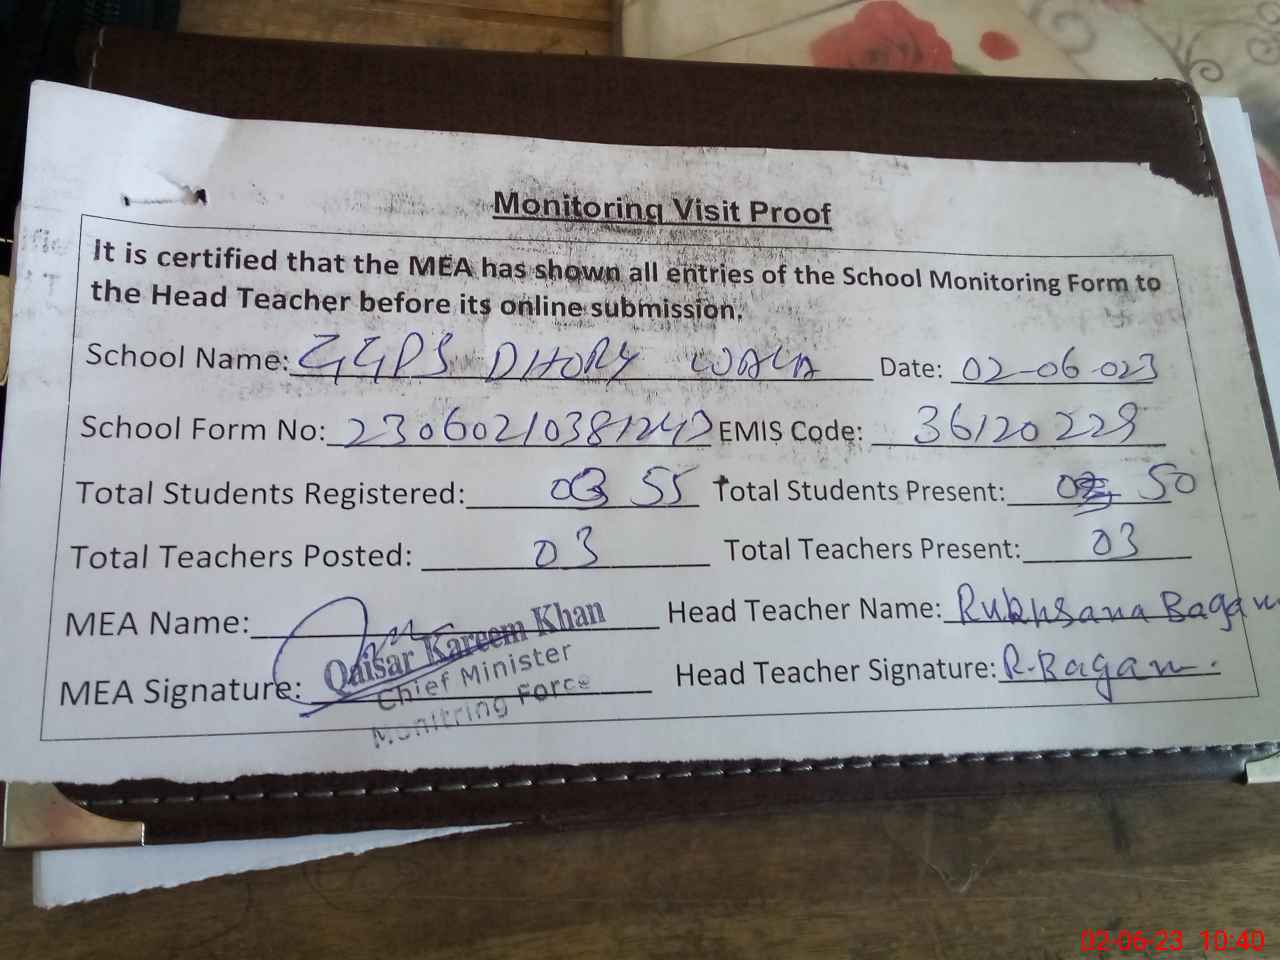 Monitoring Visit Proof
It is certified that the MEA has shown all entries of the School Monitoring Form to
the Head Teacher before its online submission.
School Name: GGPS DHORY WALA Date: 02-06-023
School Form No: EMIS Code: 36120229
Total Students Registered: 03 55 Total Students Present: 50
Total Teachers Posted: 03 Total Teachers Present: 03
MEA Name: Head Teacher Name: Rukhsana Bagam
Qaisar Kareem Khan
MEA Signature: Head Teacher Signature: R.Bagam.
Chief Minister
Monitring Force
02-06-23 10:40